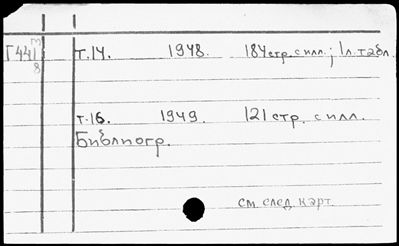 Г441 т.14. 1948. 184стр. с илл.; 1л. табл.
8
т.16. 1949. 121 стр. с илл.
Библиогр.
см. след. карт